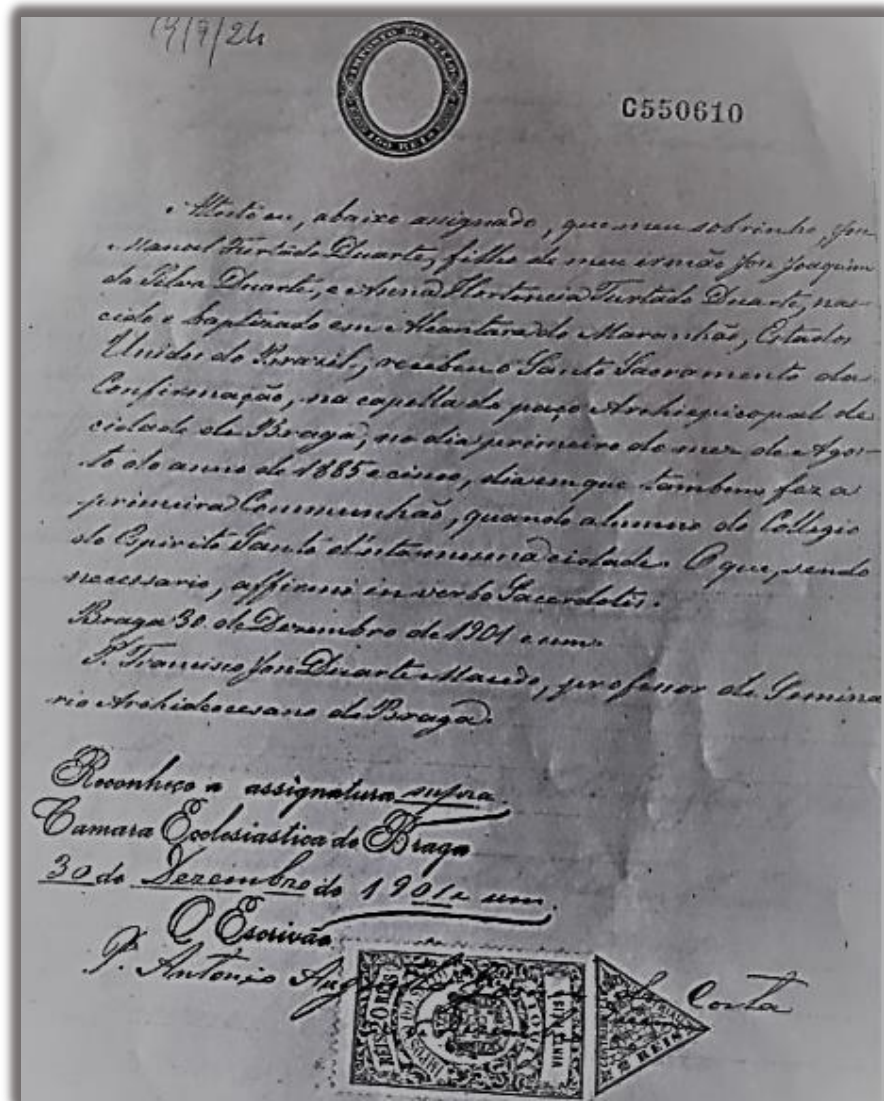 14/7/24
IMPOSTO DO SELLO
100 REIS
C550610
Attesto eu, abaixo assignado, que meu sobrinho, José
Manoel Furtado Duarte, filho de meu irmão José Joaquim
da Silva Duarte, e Anna Hortencia Furtado Duarte, nas-
cido e baptizado em Alcantara do Maranhão, Estados
Unidos do Brazil, recebeu o Santo Sacramento da
Confirmação, na capella do paço Archiepiscopal de
cidade de Braga, no dia primeiro do mez de Agos-
to do anno de 1885 e cinco, dia em que tambem fez a
primeira Communhão, quando alumno do Collegio
do Espirito Santo d'esta mesma cidade. O que, sendo
necessario, affirmo in verbo Sacerdotis.
Braga 30 de Dezembro de 1901 e um.
P. Francisco José Duarte Macedo, professor do Semina
rio Archidiocesano de Braga.
Reconheço a assignatura supra.
Camara Ecclesiastica de Braga
30 de Dezembro de 1901 e um.
O Escrivão
P. Antonio Augusto da Costa
REIS 20 REIS
IMPOSTO DO SELLO
REIS